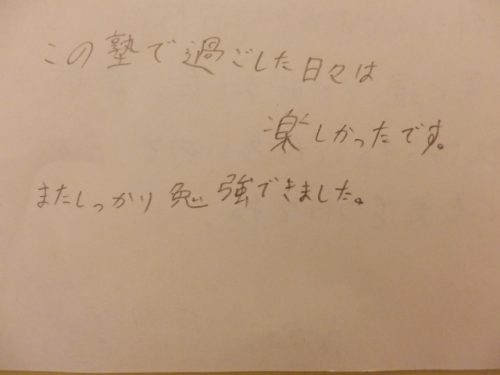 この塾で過ごした日々は
楽しかったです。
またしっかり勉強できました。